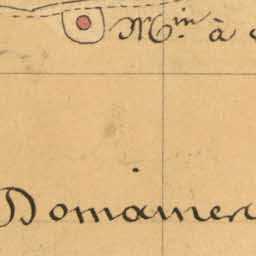 Mⁱⁿ à
Domainer